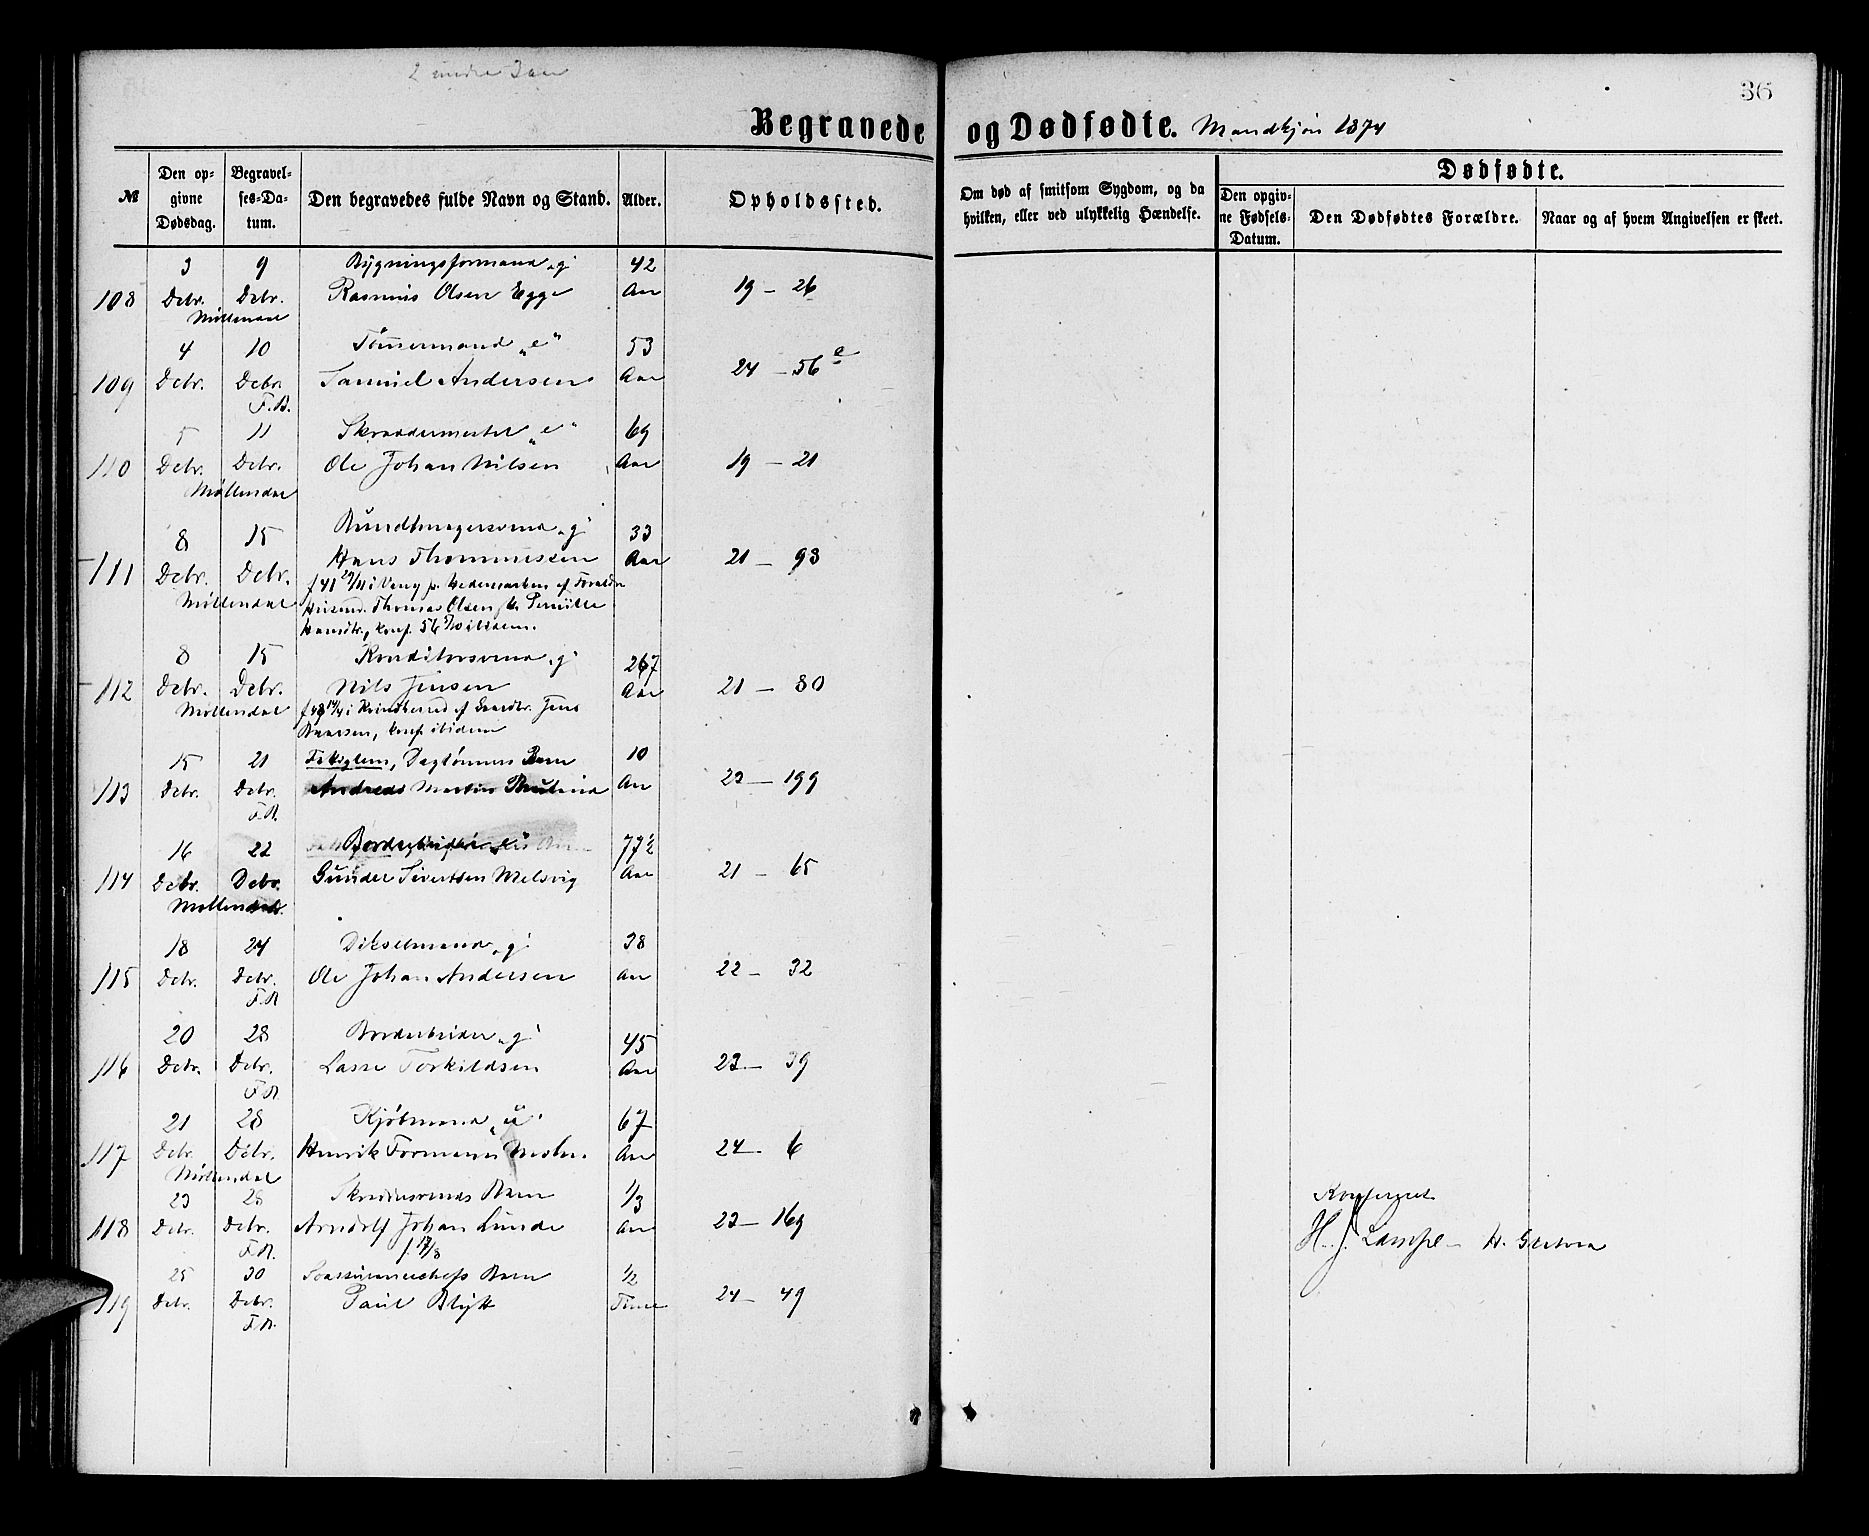 36
Begravede og Dødfødte. Mandkjøn 1874
№
Den opgivne Dødsdag.
Begravelses-Datum.
Den begravedes fulde Navn og Stand.
Alder.
Opholdssted.
Om død af smitsom Sygdom, og da hvilken, eller ved ulykkelig Hændelse.
Dødfødte.
Den opgivne Fødsels-Datum.
Den Dødfødtes Forældre.
Naar og af hvem Angivelsen er skeet.
3 9 Bygningsformand „g" 42
108 Debr. Debr. Rasmus Olsen Egge Aar 19 – 26
Møllendal
4 10 Tømmermand „e" 53
109 Debr. Debr. Samuel Andersen Aar 24 – 56 a
F.B.
5 11 Skræddermester „e" 69
110 Debr. Debr. Ole Johan Nilsen Aar 19 – 21
Møllendal
8 15 Bundtmagersvend „g" 33
111 Debr. Debr. Hans Thommessen Aar 21 – 93
f 41 i Vang p. Hedemarken af Forældr
Møllendal Husmd. Thomas Olsen Pernille
Hansdtr., konf. 56 ibidem.
8 15 Konditorsvend „g" 267
112 Debr. Debr. Nils Jensen Aar 21 – 80
Møllendal i Kvindherred af Gaardbr. Jens
konf. ibidem
15 21 Daglønners Barn 10
113 Debr. Debr. Andreas Martin Aar 23 – 199
F.B.
16 22 Bordarbeider 77½
114 Debr. Debr. Gunder Sivertsen Melsvig Aar 21 – 65
Møllendal.
18 24 Dikselmand „g" 38
115 Debr. Debr. Ole Johan Andersen Aar 22 – 32
F.B
20 28 Bordarbeider „g" 45
116 Debr. Debr. Lasse Torkildsen Aar 23 – 39
F.B
21 28 Kjøbmand „u" 67
117 Debr. Debr. Henrik Formann Aar 24 – 6
Møllendal
23 28 Skræddersvends Barn 1/3
118 Debr. Debr. Arndolf Johan Lunde Aar 23 – 169
F.B. f. 17/8
25 30 Barn ½
119 Debr. Debr. Paul Blytt Time 24 – 49
F.B.
Konfereret
H. J. Lampe